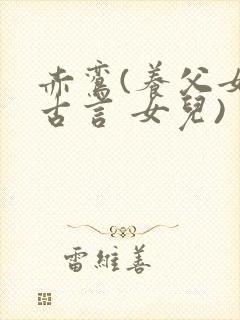 赤鸞(養父女
古言 女兒)
雷維善